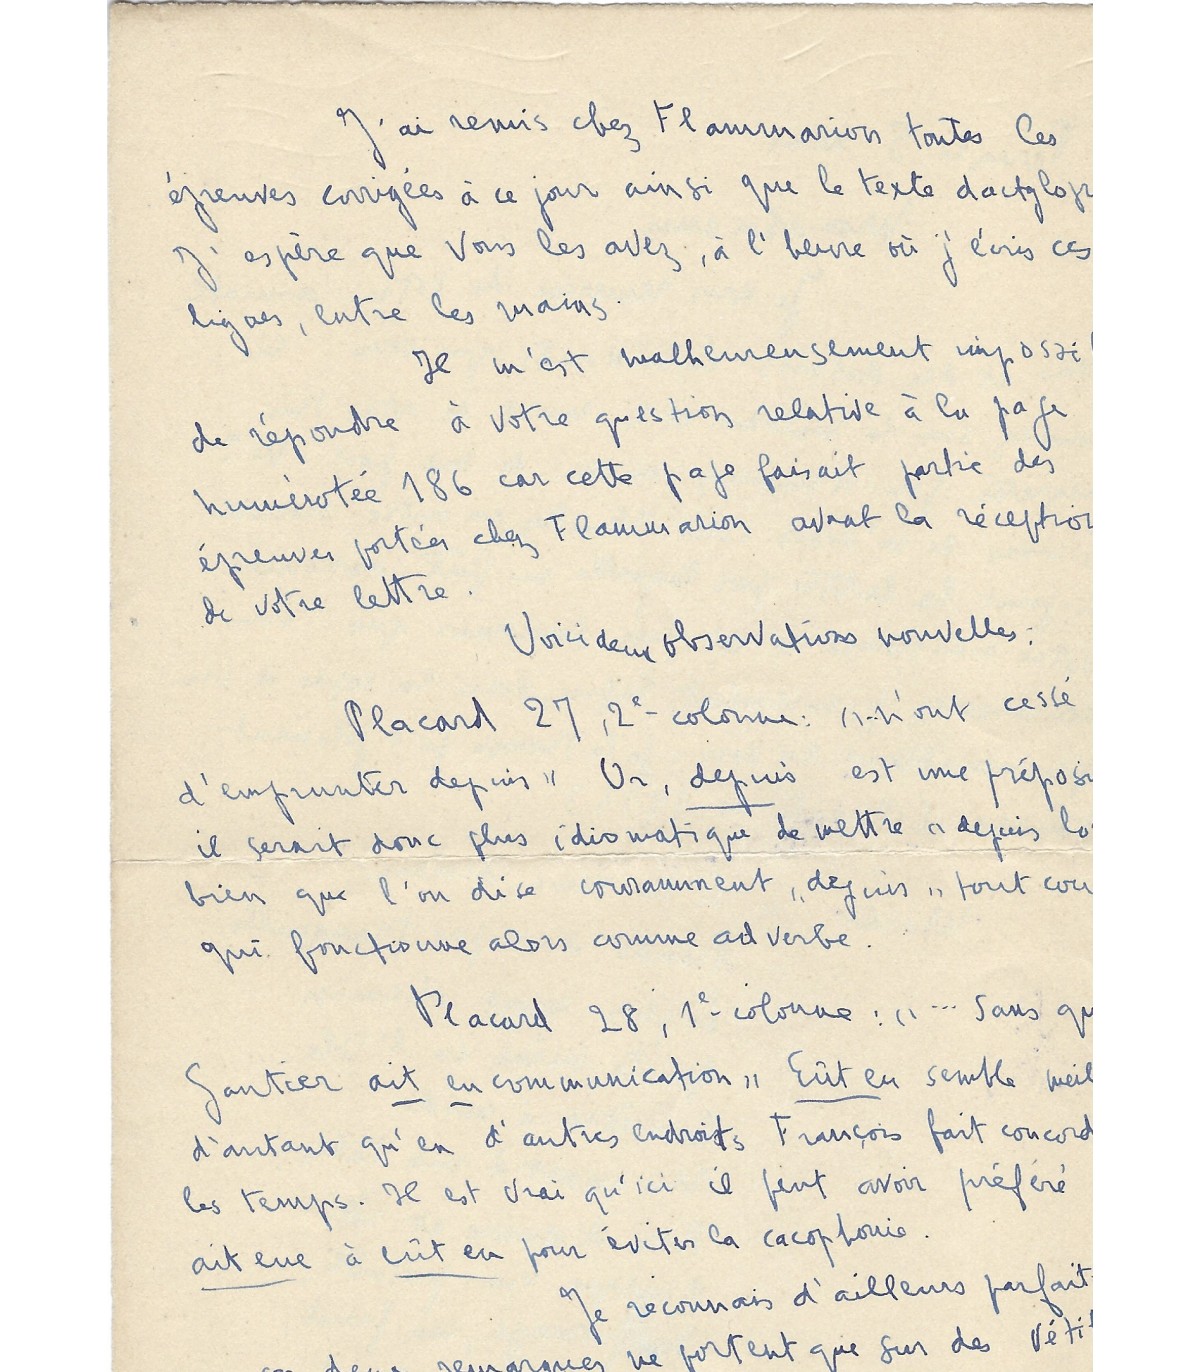 J'ai remis chez Flammarion toutes les
épreuves corrigées à ce jour ainsi que le texte dactylogr
J'espère que vous les avez, à l'heure où j'écris ces
lignes, entre les mains.
Il m'est malheureusement impossi
de répondre à votre question relative à la page
numérotée 186 car cette page faisait partie des
épreuves portées chez Flammarion avant la réception
de votre lettre.
Voici deux observations nouvelles:
Placard 27, 2e colonne: «..n'ont cessé
d'emprunter depuis» Or, depuis est une préposi
il serait donc plus idiomatique de mettre « depuis lo
bien que l'on dise couramment „depuis" tout cou
qui fonctionne alors comme adverbe.
Placard 28, 1e colonne: «... Sans qu
Gautier ait eu communication» Eût eu semble meil
d'autant qu'en d'autres endroits François fait concord
les temps. Il est vrai qu'ici il peut avoir préféré
ait eue à eût eu pour éviter la cacophonie.
Je reconnais d'ailleurs parfait
deux remarques ne portent que sur des véti